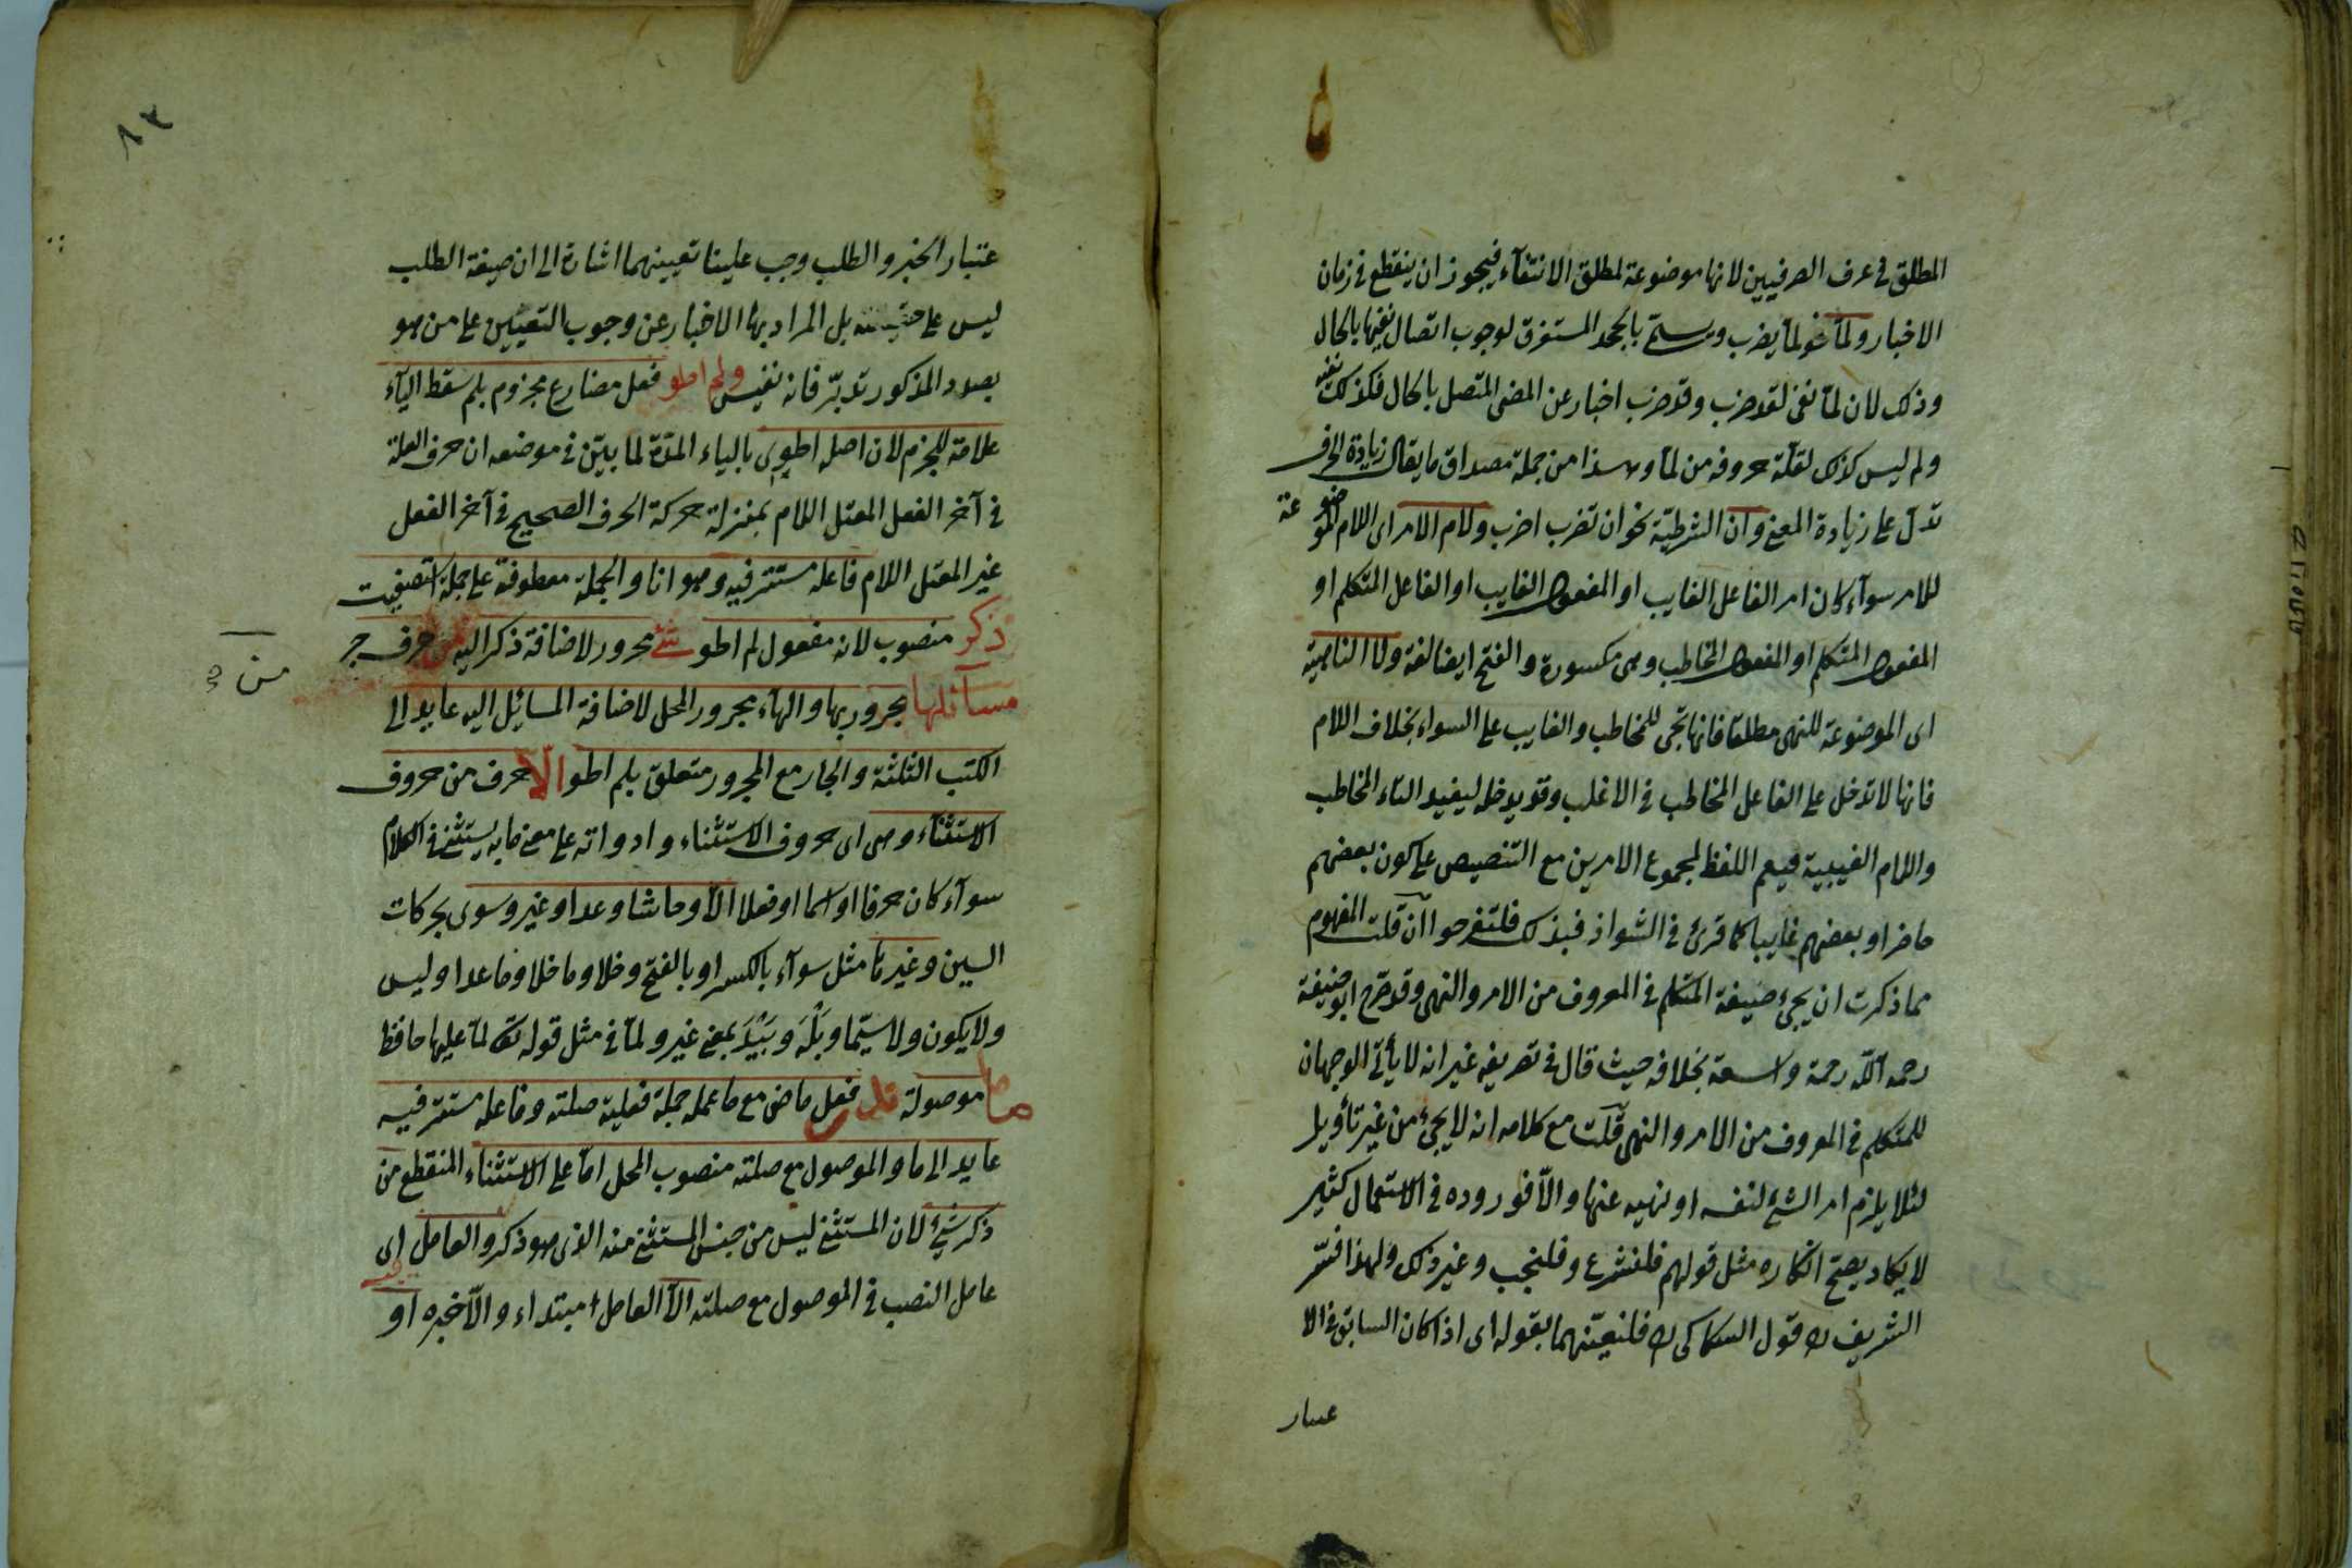 المطلق في عرف الصرفيين لانها موضوعة لمطلق الانتفآء فيجوز ان ينقطع في زمان
الاخبار ولمّا نحو لمّا يضرب ويسمّى بالجحد المستغرق لوجوب اتصال نفيها بالحال
وذلك لان لمّا نفى لقد ضرب وقد ضرب اخبار عن المضى المتصل بالحال فكذلك نفيه
ولم ليس كذلك لقلّة حروفه من لمّا وهذا من جملة مصداق ما يقال زيادة الحرف
تدلّ على زيادة المعنى وان الشرطيّة نحو ان تضرب اضرب ولام الامر اى اللام الموضوعة
للامر سوآء كان امر الفاعل الغايب او المفعول الغايب او الفاعل المتكلم او
المفعول المتكلم او المفعول المخاطب وهى مكسورة والفتح ايضا لغة ولا الناهية
اى الموضوعة للنهى مطلقا فانها تجى للمخاطب والغايب على السواء بخلاف اللام
فانها لا تدخل على الفاعل المخاطب في الاغلب وقد يدخله ليفيد التاء المخاطب
واللام الغيبية فيعم اللفظ لمجموع الامرين مع التنصيص على كون بعضهم
حاضرا وبعضهم غايبا كما قرئ في الشواذ فبذلك فلتفرحوا ان قلت المفهوم
مما ذكرت ان يجئ صيغة المتكلم في المعروف من الامر والنهى وقد صرح ابو حنيفة
رحمه الله رحمة واسعة بخلافه حيث قال في تصريفه غير انه لا يأتى الوجهان
للمتكلم في المعروف من الامر والنهى قلت مع كلامه انه لا يجئ من غير تأويل
لئلا يلزم امر الشئ لنفسه او نهيه عنها والّا فوروده في الاستعمال كثير
لا يكاد يصح انكاره مثل قولهم فلنشرع وفلنجب وغير ذلك ولهذا فسّر
الشريف قول السكاكى فلنعيّنهما بقوله اى اذا كان السابق في الا
عتبار
٨٣
عتبار الخبر والطلب وجب علينا تعيينهما اشارة الى ان صيغة الطلب
ليس على حقيقته بل المراد بها الاخبار عن وجوب التعيين على من هو
بصدد المذكور تدبّر فانه نفيس ولم اطو فعل مضارع مجزوم بلم سقط اليآء
علامة للجزم لان اصله اطوى بالياء المدّة لما بيّن في موضعه ان حرف العلة
في آخر الفعل المعتل اللام بمنزلة حركة الحرف الصحيح في آخر الفعل
غير المعتل اللام فاعله مستتر فيه وهو انا والجملة معطوفة على جملة استصفيت
ذكر منصوب لانه مفعول لم اطو شئ مجرور لاضافة ذكر اليه من حرف جر
من
مسآئلها مجرور بها والهآء مجرور المحل لاضافة المسائل اليه عايد الى
الكتب الثلثة والجار مع المجرور متعلق بلم اطو الّا حرف من حروف
الاستثنآء وهى اى حروف الاستثناء وادواته على معنى ما به يستثنى في الكلام
سوآء كان حرفا او اسما او فعلا الّا وحاشا وعدا وغير وسوى بحركات
السين وغيرها مثل سوآء بالكسر او بالفتح وخلا وما خلا وما عدا وليس
ولا يكون ولا سيّما وبَلْهَ وبَيْدَ بمعنى غير ولمّا في مثل قوله تعالى لمّا عليها حافظ
ما موصولة قلّ فعل ماض مع ما عمله جملة فعلية صلته وفاعله مستتر فيه
عايد الى ما والموصول مع صلته منصوب المحل امّا على الاستثناء المنقطع من
ذكر شئ لان المستثنى ليس من جنس المستثنى منه الذى هو ذكر والعامل اى
عامل النصب في الموصول مع صلته الّا العامل مبتداء والّا خبره او